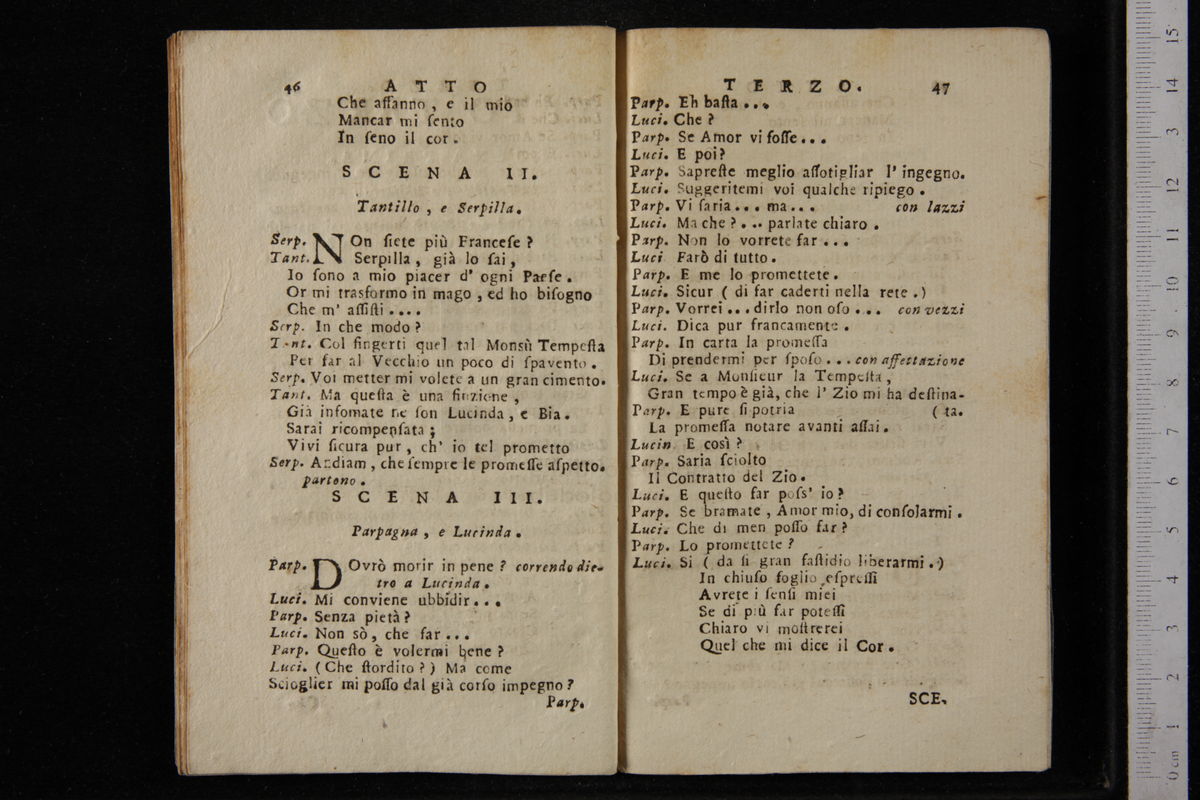 46 ATTO
Che affanno, e il mio
Mancar mi ſento
In ſeno il cor.
SCENA II.
Tantillo, e Serpilla.
Serp. NOn ſiete più Franceſe?
Tant. Serpilla, già lo ſai,
Io ſono a mio piacer d' ogni Paeſe.
Or mi trasformo in mago, ed ho biſogno
Che m' aſſiſti....
Serp. In che modo?
Tant. Col fingerti quel tal Monsù Tempeſta
Per far al Vecchio un poco di ſpavento.
Serp. Voi metter mi volete a un gran cimento.
Tant. Ma queſta è una finzione,
Già infomate ne ſon Lucinda, e Bia.
Sarai ricompenſata;
Vivi ſicura pur, ch' io tel prometto
Serp. Andiam, che ſempre le promeſſe aſpetto.
partono.
SCENA III.
Parpagna, e Lucinda.
Parp. DOvrò morir in pene? correndo die-
tro a Lucinda.
Luci. Mi conviene ubbidir...
Parp. Senza pietà?
Luci. Non sò, che far...
Parp. Queſto è volermi bene?
Luci. (Che ſtordito?) Ma come
Scioglier mi poſſo dal già corſo impegno?
Parp.
TERZO. 47
Parp. Eh baſta...
Luci. Che?
Parp. Se Amor vi foſſe...
Luci. E poi?
Parp. Sapreſte meglio aſſotigliar l' ingegno.
Luci. Suggeritemi voi qualche ripiego.
Parp. Vi ſaria... ma... con lazzi
Luci. Ma che?... parlate chiaro.
Parp. Non lo vorrete far...
Luci Farò di tutto.
Parp. E me lo promettete.
Luci. Sicur (di far caderti nella rete.)
Parp. Vorrei... dirlo non oſo... con vezzi
Luci. Dica pur francamente.
Parp. In carta la promeſſa
Di prendermi per ſpoſo... con affettazione
Luci. Se a Monſieur la Tempeſta,
Gran tempo è già, che l' Zio mi ha deſtina-
Parp. E pure ſi potria (ta.
La promeſſa notare avanti aſſai.
Lucin. E così?
Parp. Saria ſciolto
Il Contratto del Zio.
Luci. E queſto far poſs' io?
Parp. Se bramate, Amor mio, di conſolarmi.
Luci. Che di men poſſo far?
Parp. Lo promettete?
Luci. Si (da ſi gran faſtidio liberarmi.)
In chiuſo foglio eſpreſſi
Avrete i ſenſi miei
Se di più far poteſſi
Chiaro vi moſtrerei
Quel che mi dice il Cor.
SCE-
15
14
13
12
11
10
9
8
7
6
5
4
3
2
1
0 cm